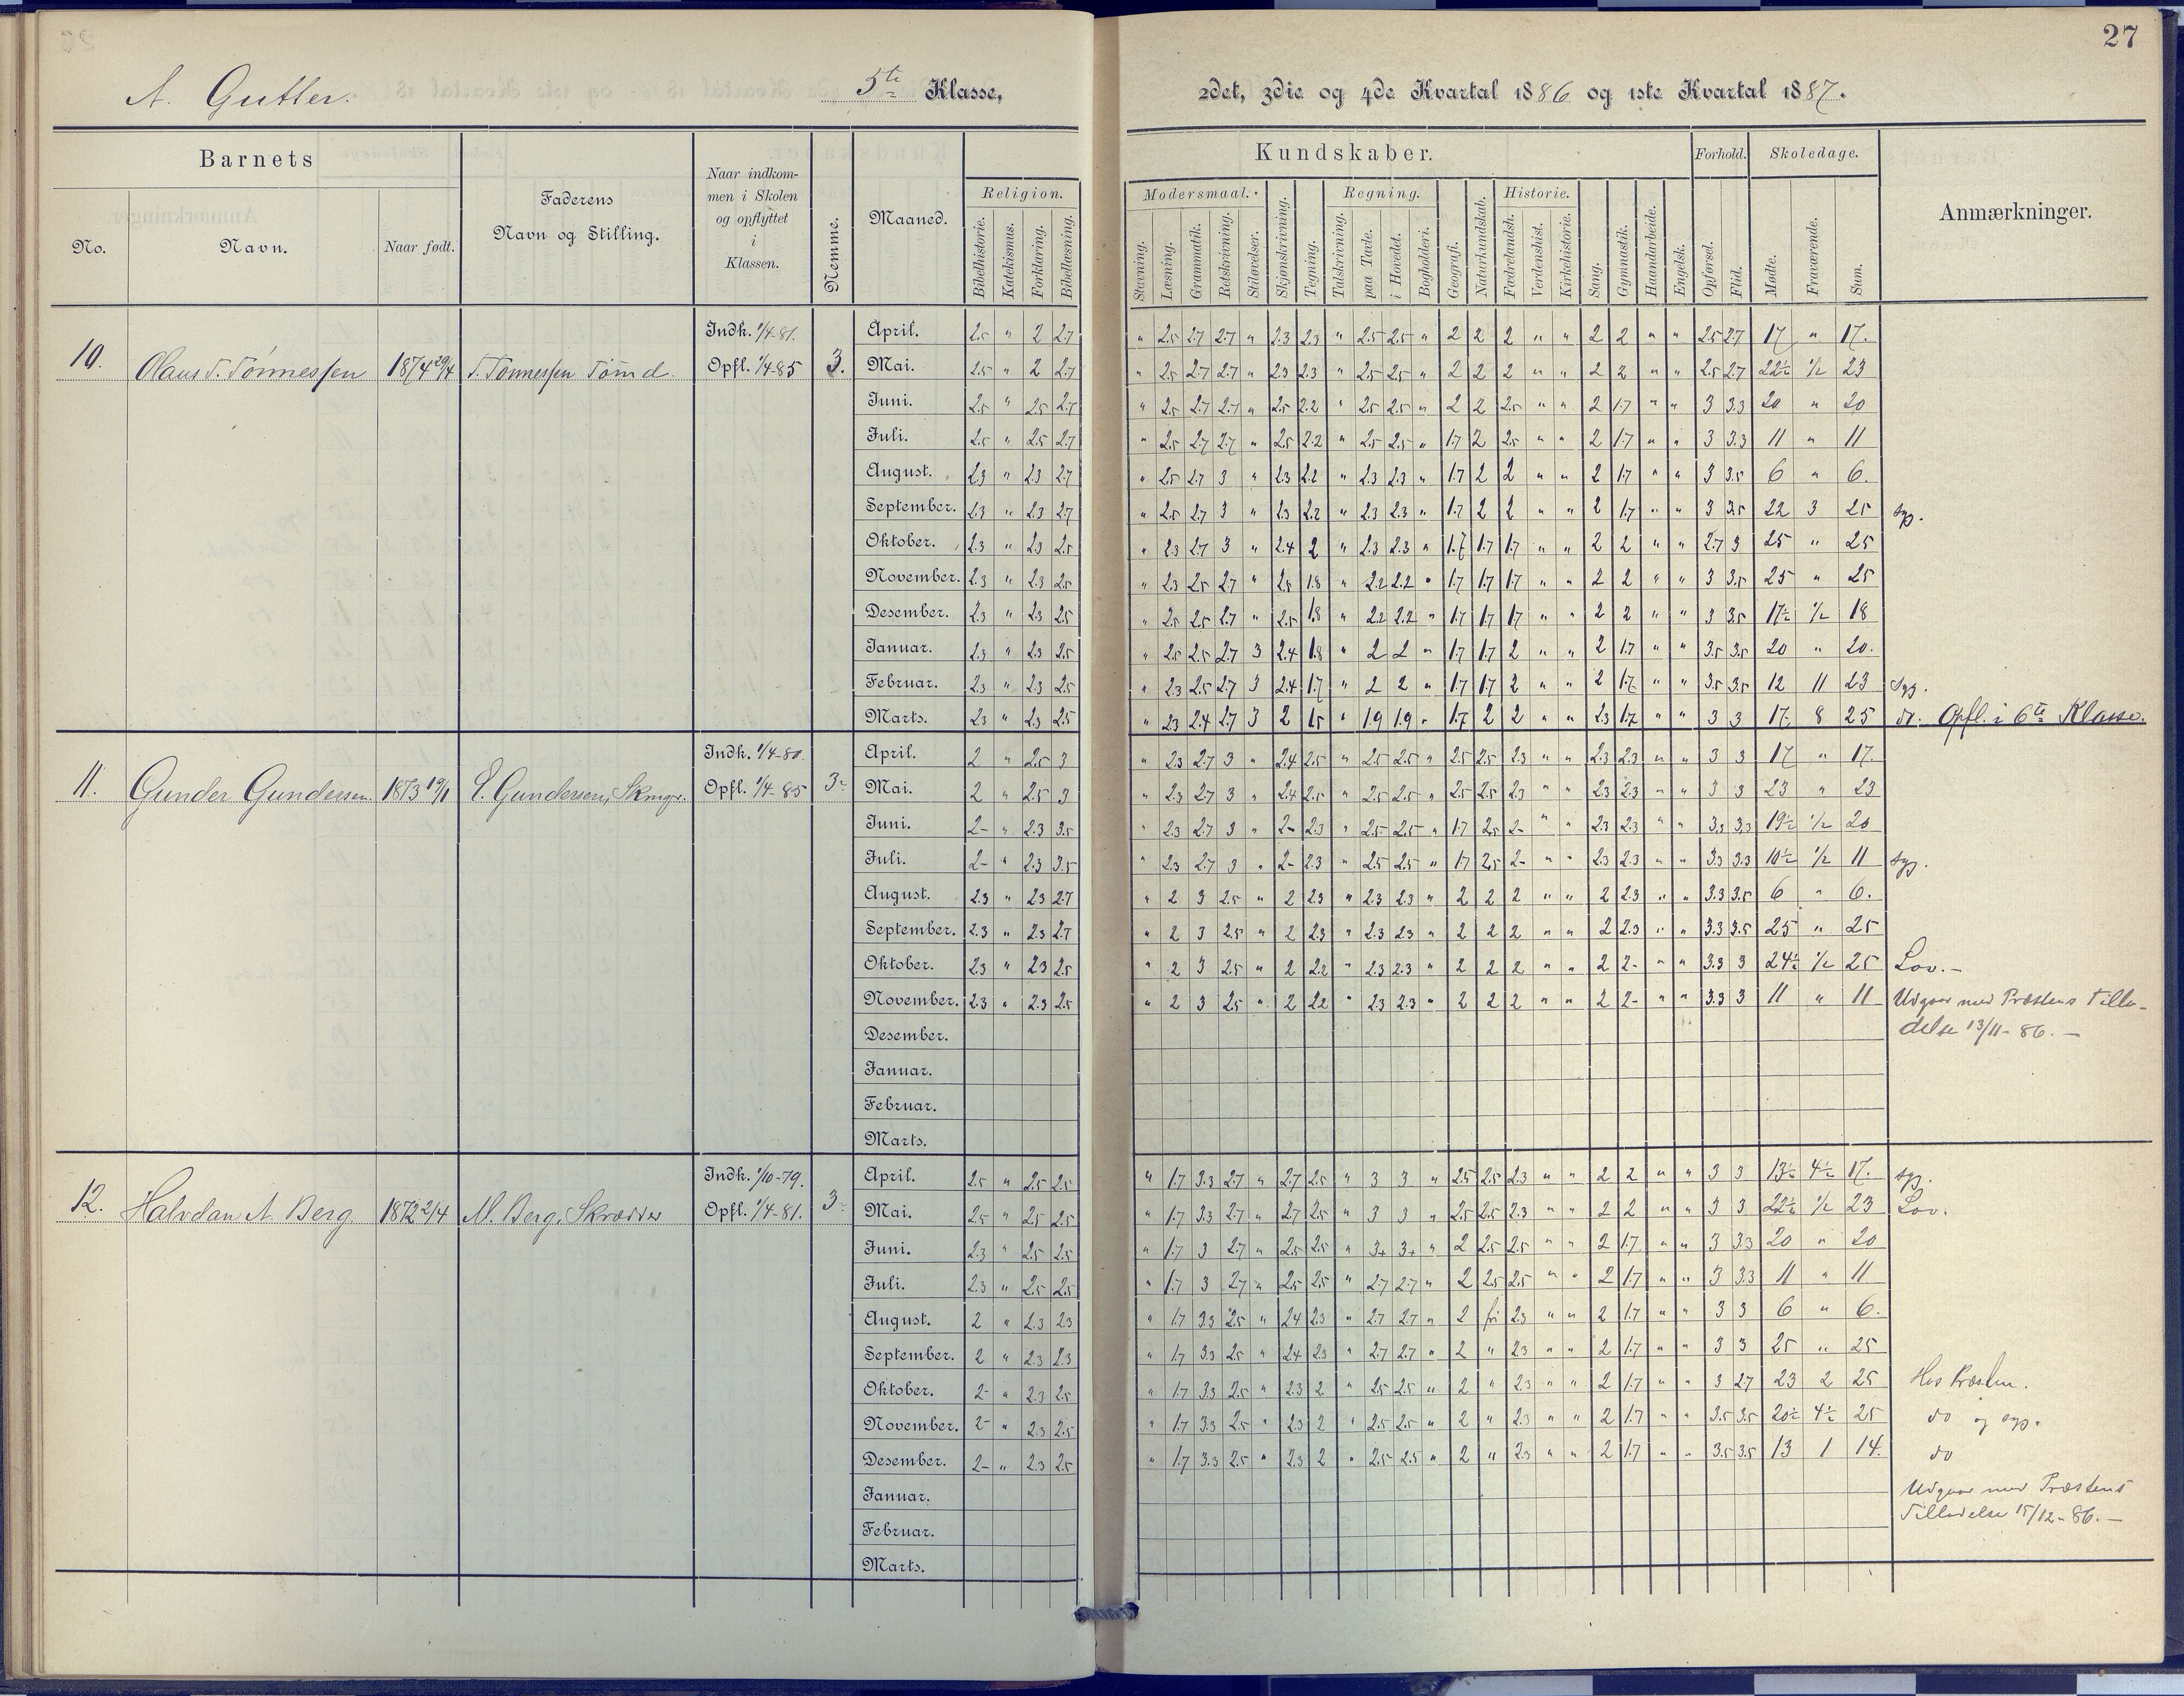 27
A. Gutter. 5te Klasse, 2det, 3die og 4de Kvartal 1886 og 1ste Kvartal 1887.
Barnets
No. Navn. Naar født.
Faderens
Navn og Stilling.
Naar indkom-
men i Skolen
og opflyttet
i
Klassen.
Nemme.
Maaned.
Religion.
Bibelhistorie. Katekismus. Forklaring. Bibellæsning.
Kundskaber. Forhold. Skoledage.
Modersmaal. Regning. Historie.
Stavning. Læsning. Grammatik. Retskrivning. Stiløvelser. Skjønskrivning. Tegning. Talskrivning. paa Tavle. i Hovedet. Bogholderi. Geografi. Naturkundskab. Fædrelandsh. Verdenshist. Kirkehistorie. Sang. Gymnastik. Haandarbeide. Engelsk. Opførsel. Flid. Mødte. Fraværende. Sum.
Anmærkninger.
10. Olaus T. Tönnessen 1874 29/4 T. Tönnessen Tömd. Indk. 1/4-81. Opfl. 1/4-85 3.
April. 2.5 " 2 2.7 " 2.5 2.7 2.7 " 2.3 2.3 " 2.5 2.5 " 2 2 2 " " 2 2 " " 2.5 2.7 17 " 17.
Mai. 2.5 " 2 2.7 " 2.5 2.7 2.7 " 2.3 2.3 " 2.5 2.5 " 2 2 2 " " 2 2 " " 2.5 2.7 22½ ½ 23
Juni. 2.5 " 2.5 2.7 " 2.5 2.7 2.7 " 2.5 2.2 " 2.5 2.5 " 2 2 2.5 " " 2 1.7 " " 3 3.3 20 " 20
Juli. 2.5 " 2.5 2.7 " 2.5 2.7 2.7 " 2.5 2.2 " 2.5 2.5 " 1.7 2 2.5 " " 2 1.7 " " 3 3.3 11 " 11
August. 2.3 " 2.3 2.7 " 2.5 2.7 3 " 2.3 2.2 " 2.3 2.3 " 1.7 2 2 " " 2 1.7 " " 3 3.5 6 " 6.
September. 2.3 " 2.3 2.7 " 2.5 2.7 3 " 2.3 2.2 " 2.3 2.3 " 1.7 2 2 " " 2 1.7 " " 3 3.5 22 3 25 syg.
Oktober. 2.3 " 2.3 2.5 " 2.3 2.7 3 " 2.4 2 " 2.3 2.3 " 1.7 1.7 1.7 " " 2 2 " " 2.7 3 25 " 25
November. 2.3 " 2.3 2.5 " 2.3 2.5 2.7 " 2.5 1.8 " 2.2 2.2 " 1.7 1.7 1.7 " " 2 2 " " 3 3.5 25 " 25
Desember. 2.3 " 2.3 2.5 " 2.5 2.5 2.7 " 2.5 1.8 " 2.2 2.2 " 1.7 1.7 1.7 " " 2 2 " " 3 3.5 17½ ½ 18
Januar. 2.3 " 2.3 2.5 " 2.5 2.5 2.7 3 2.4 1.8 " 2 2 " 1.7 1.7 2 " " 2 1.7 " " 3.5 3.5 20 " 20.
Februar. 2.3 " 2.3 2.5 " 2.3 2.5 2.7 3 2.4 1.7 " 2 2 " 1.7 1.7 2 " " 2 1.7 " " 3.5 3.5 12 11 23 syg.
Marts. 2.3 " 2.3 2.5 " 2.3 2.4 2.7 3 2 1.5 " 1.9 1.9 " 1.7 2 2 " " 2.3 1.7 " " 3 3 17 8 25 do. Opfl. i 6te Klasse.
11. Gunder Gundersen. 1873 19/1 E. Gundersen, Skmgr. Indk. 1/4-80. Opfl. 1/4-85 3-
April. 2 " 2.5 3 " 2.3 2.7 3 " 2.4 2.5 " 2.5 2.5 " 2.5 2.5 2.3 " " 2.3 2.3 " " 3 3 17 " 17.
Mai. 2 " 2.5 3 " 2.3 2.7 3 " 2.4 2.5 " 2.5 2.5 " 2.5 2.5 2.3 " " 2.3 2.3 " " 3 3 23 " 23
Juni. 2- " 2.3 3.5 " 2.3 2.7 3 " 2- 2.3 " 2.5 2.5 " 1.7 2.5 2- " " 2.3 2.3 " " 3.3 3.3 19½ ½ 20
Juli. 2- " 2.3 3.5 " 2.3 2.7 3 " 2- 2.3 " 2.5 2.5 " 1.7 2.5 2- " " 2.3 2.3 " " 3.3 3.3 10½ ½ 11 syg.
August. 2.3 " 2.3 2.7 " 2 3 2.5 " 2 2.3 " 2.3 2.3 " 2 2 2 " " 2 2.3 " " 3.3 3.5 6 " 6.
September. 2.3 " 2.3 2.7 " 2 3 2.5 " 2 2.3 " 2.3 2.3 " 2 2 2 " " 2 2.3 " " 3.3 3.5 25 " 25
Oktober. 2.3 " 2.3 2.5 " 2 3 2.5 " 2 2.2 " 2.3 2.3 " 2 2 2 " " 2 2- " " 3.3 3 24½ ½ 25 Lov.-
November. 2.3 " 2.3 2.5 " 2 3 2.5 " 2 2.2 " 2.3 2.3 " 2 2 2 " " 2 2- " " 3.3 3 11 " 11 Udgaar med Præstens Tilla-
Desember. delse 13/11-86.-
Januar.
Februar.
Marts.
12. Halvdan A. Berg. 1872 2/4 M. Berg, Skrædder Indk. 1/10-79. Opfl. 1/4-81. 3-
April. 2.5 " 2.5 2.5 " 1.7 3.3 2.7 " 2.7 2.5 " 3 3 " 2.5 2.5 2.3 " " 2 2 " " 3 3 13½ 4½ 17. syg.
Mai. 2.5 " 2.5 2.5 " 1.7 3.3 2.7 " 2.7 2.5 " 3 3 " 2.5 2.5 2.3 " " 2 2 " " 3 3 22½ ½ 23 Lov.
Juni. 2.3 " 2.5 2.5 " 1.7 3 2.7 " 2.5 2.5 " 3+ 3+ " 2 2.5 2.5 " " 2 1.7 " " 3 3.3 20 " 20
Juli. 2.3 " 2.5 2.5 " 1.7 3 2.7 " 2.5 2.5 " 2.7 2.7 " 2 2.5 2.5 " " 2 1.7 " " 3 3.3 11 " 11
August. 2 " 2.3 2.3 " 1.7 3.3 2.5 " 2.4 2.3 " 2.7 2.7 " 2 fri 2.3 " " 2 1.7 " " 3 3 6 " 6.
September. 2 " 2.3 2.3 " 1.7 3.3 2.5 " 2.4 2.3 " 2.7 2.7 " 2 " 2.3 " " 2 1.7 " " 3 3 25 " 25
Oktober. 2- " 2.3 2.5 " 1.7 3.3 2.5 " 2.3 2 " 2.5 2.5 " 2 " 2.3 " " 2 1.7 " " 3 2.7 23 2 25 Hos Præsten.
November. 2- " 2.3 2.5 " 1.7 3.3 2.5 " 2.3 2 " 2.5 2.5 " 2 " 2.3 " " 2 1.7 " " 3.5 3.5 20½ 4½ 25 do og syg.
Desember. 2- " 2.3 2.5 " 1.7 3.3 2.5 " 2.3 2 " 2.5 2.5 " 2 " 2.3 " " 2 1.7 " " 3.5 3.5 13 1 14. do
Januar. Udgaar med Præstens
Februar. Tilladelse 15/12-86.-
Marts.